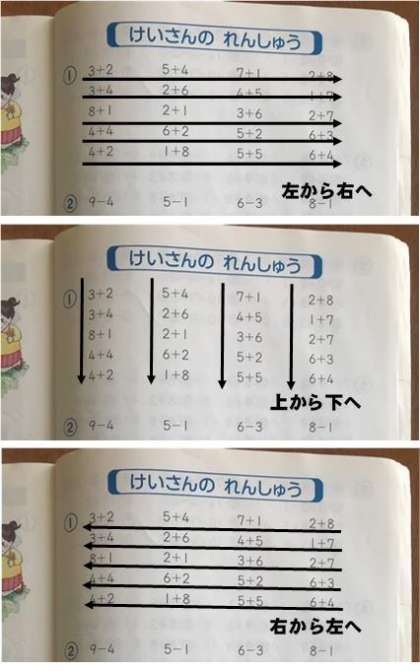 けいさんの れんしゅう
① 3+2 5+4 7+1 2+8
3+4 2+6 4+5 1+7
8+1 2+1 3+6 2+7
4+4 6+2 5+2 6+3
4+2 1+8 5+5 6+4
左から右へ
② 9-4 5-1 6-3 8-1
けいさんの れんしゅう
① 3+2 5+4 7+1 2+8
3+4 2+6 4+5 1+7
8+1 2+1 3+6 2+7
4+4 6+2 5+2 6+3
4+2 1+8 5+5 6+4
上から下へ
② 9-4 5-1 6-3 8-1
けいさんの れんしゅう
① 3+2 5+4 7+1 2+8
3+4 2+6 4+5 1+7
8+1 2+1 3+6 2+7
4+4 6+2 5+2 6+3
4+2 1+8 5+5 6+4
右から左へ
② 9-4 5-1 6-3 8-1